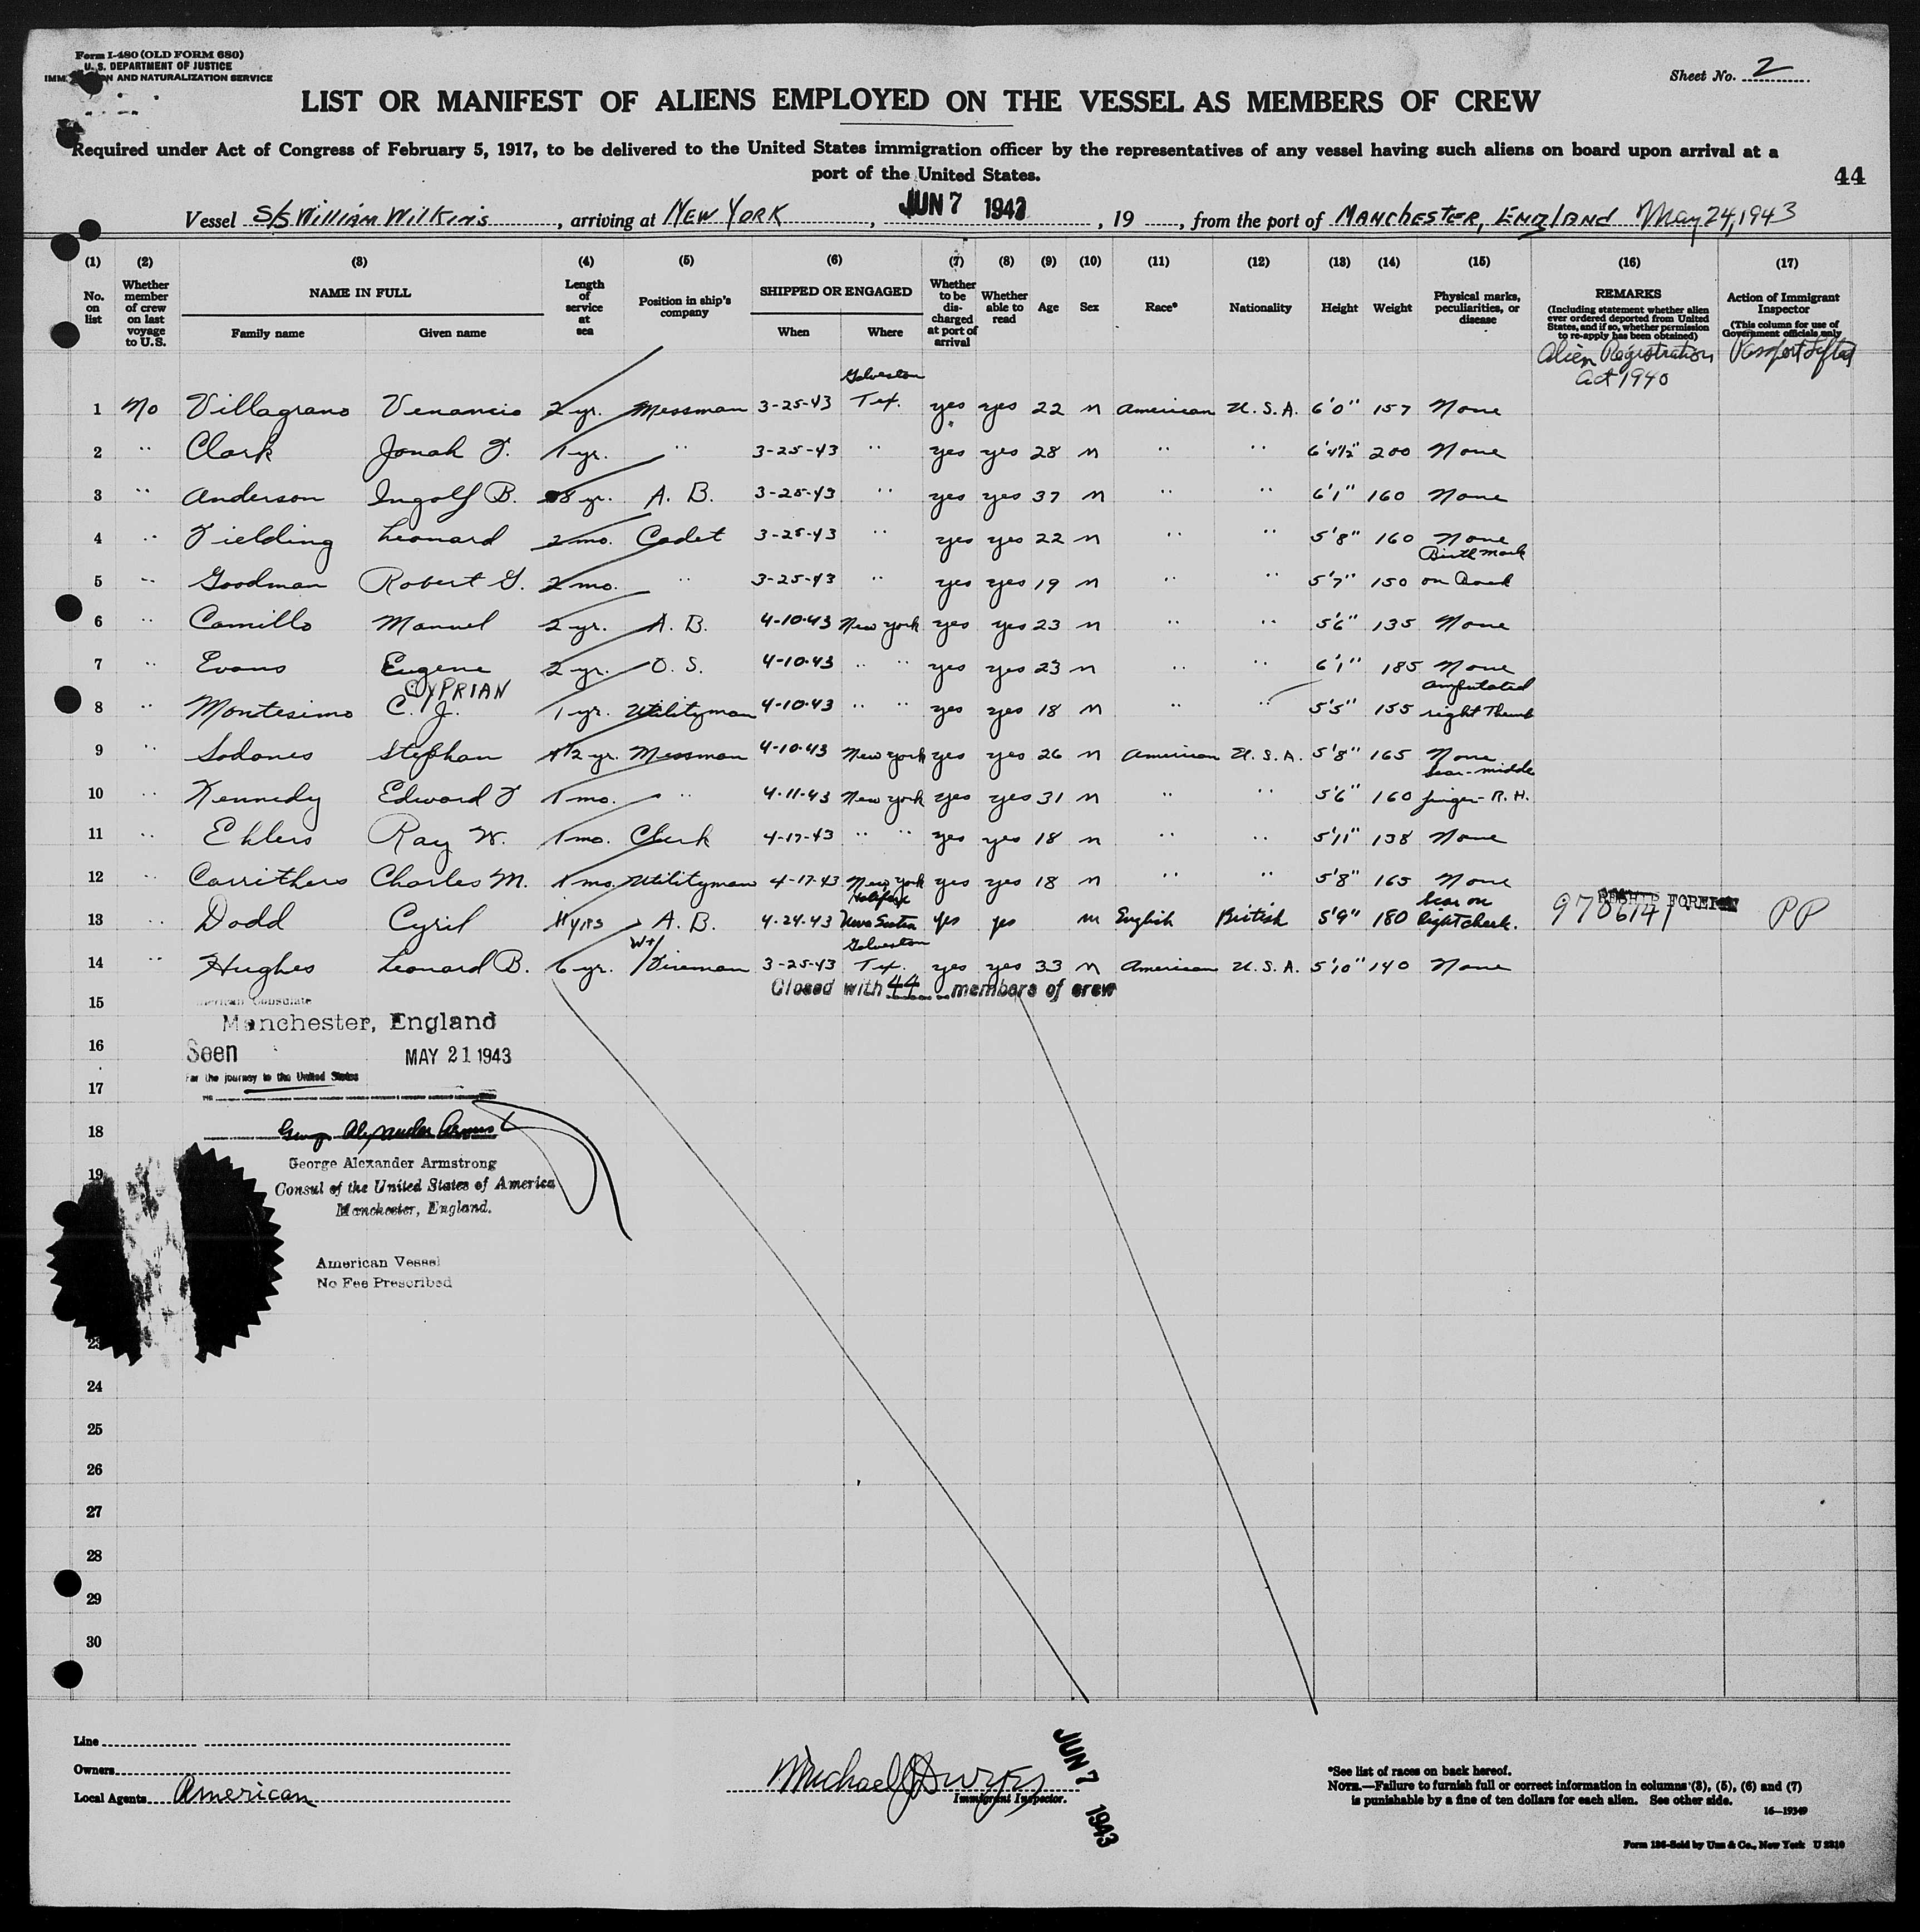 Form I-480 (OLD FORM 680)
U. S. DEPARTMENT OF JUSTICE
IMM N AND NATURALIZATION SERVICE
Sheet No. 2
LIST OR MANIFEST OF ALIENS EMPLOYED ON THE VESSEL AS MEMBERS OF CREW
Required under Act of Congress of February 5, 1917, to be delivered to the United States immigration officer by the representatives of any vessel having such aliens on board upon arrival at a
port of the United States.
44
Vessel S/S William Wilkins, arriving at New York, JUN 7 1943, 19 , from the port of Manchester, England May 24, 1943
(1) (2) (3) (4) (5) (6) (7) (8) (9) (10) (11) (12) (13) (14) (15) (16) (17)
No. on list
Whether member of crew on last voyage to U.S.
NAME IN FULL
Family name Given name
Length of service at sea
Position in ship's company
SHIPPED OR ENGAGED
When Where
Whether to be discharged at port of arrival
Whether able to read
Age
Sex
Race*
Nationality
Height
Weight
Physical marks, peculiarities, or disease
REMARKS
(Including statement whether alien ever ordered deported from United States, and if so, whether permission to re-apply has been obtained)
Action of Immigrant Inspector
(This column for use of Government officials only
Alien Registration Act 1940
Passport Lifted
1 No Villagrano Venancio 2 yr. Messman 3-25-43 Galveston Tex. yes yes 22 m American U.S.A. 6'0" 157 None
2 " Clark Jonah T. 1 yr. " 3-25-43 " yes yes 28 m " " 6'4½" 200 None
3 " Anderson Ingolf B. 8 yr. A. B. 3-25-43 " yes yes 37 m " " 6'1" 160 None
4 " Fielding Leonard 2 mo. Cadet 3-25-43 " yes yes 22 m " " 5'8" 160 None
5 " Goodman Robert G. 2 mo. " 3-25-43 " yes yes 19 m " " 5'7" 150 Birthmark on
6 " Camillo Manuel 2 yr. A. B. 4-10-43 New York yes yes 23 m " " 5'6" 135 None
7 " Evans Eugene 2 yr. O. S. 4-10-43 " " yes yes 23 m " " 6'1" 185 None
8 " Montesimo CYPRIAN C. J. 1 yr. Utilityman 4-10-43 " " yes yes 18 m " " 5'5" 155 amputated right Thumb
9 " Sodanes Stephan 1/2 yr. Messman 4-10-43 New York yes yes 26 m American U.S.A. 5'8" 165 None
10 " Kennedy Edward F 1 mo. " 4-11-43 New York yes yes 31 m " " 5'6" 160 Scar-middle finger-R.H.
11 " Ehlers Ray W. 1 mo. Clerk 4-17-43 " " yes yes 18 m " " 5'11" 138 None
12 " Carrithers Charles M. 1 mo. Utilityman 4-17-43 New York yes yes 18 m " " 5'8" 165 None
13 " Dodd Cyril 4 yrs A. B. 4-24-43 Halifax Nova Scotia yes yes m English British 5'9" 180 Scar on Right cheek. 9706141 FOREIGN PP
14 " Hughes Leonard B. 6 yr. Fireman 3-25-43 Galveston Tex. yes yes 33 m American U.S.A. 5'10" 140 None
Closed with 44 members of crew
15
American Consulate
Manchester, England
16
Seen MAY 21 1943
For the journey to the United States
17
18
George Alexander Armstrong
19
George Alexander Armstrong
Consul of the United States of America
Manchester, England.
American Vessel
No Fee Prescribed
23
24
25
26
27
28
29
30
Line
Owners
Local Agents American
Immigrant Inspector.
JUN 7 1943
*See list of races on back hereof.
NOTE.—Failure to furnish full or correct information in columns (3), (5), (6) and (7)
is punishable by a fine of ten dollars for each alien. See other side.
16—19349
Form 136-Sold by Unz & Co., New York U 2310